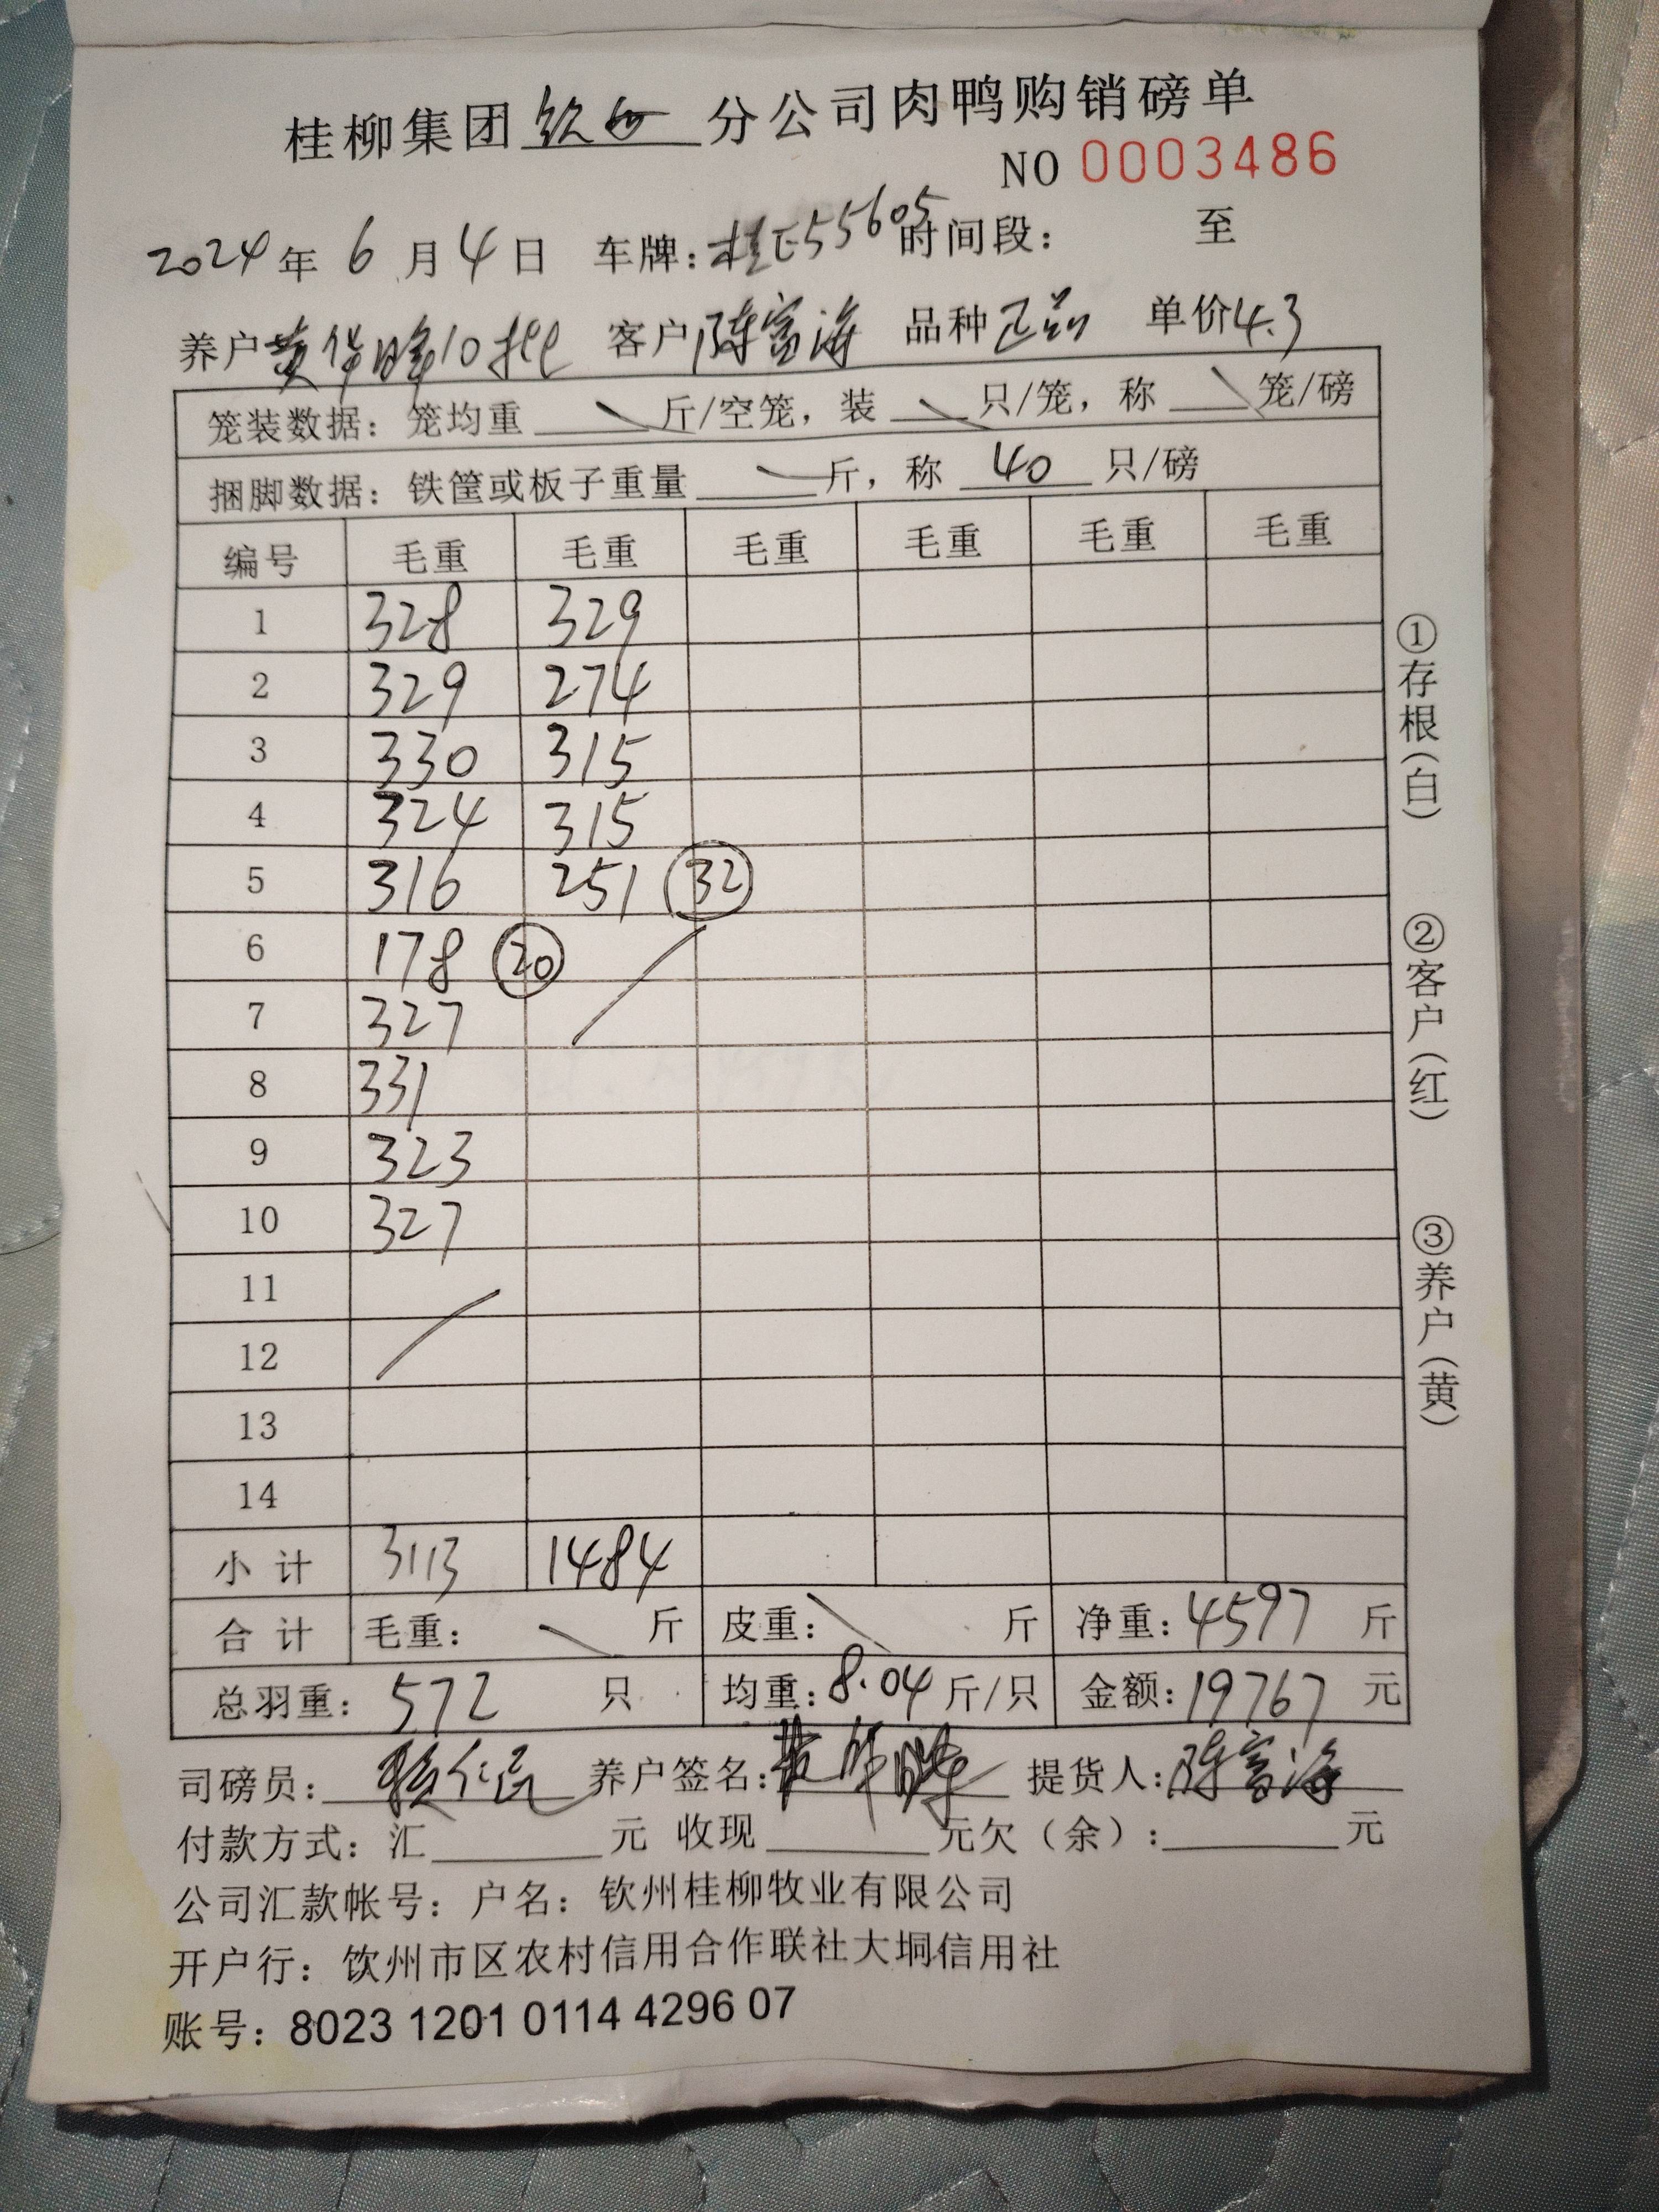 桂柳集团钦州分公司肉鸭购销磅单
NO 0003486
2024年6月4日 车牌:桂E55605时间段: 至
养户黄华峰10批 客户陈富海 品种正品 单价4.3
笼装数据:笼均重 \ 斤/空笼,装 \ 只/笼,称 \ 笼/磅
捆脚数据:铁筐或板子重量 \ 斤,称 40 只/磅
编号 毛重 毛重 毛重 毛重 毛重 毛重
1 328 329
2 329 274
3 330 315
4 324 315
5 316 251 32
6 178 20
7 327
8 331
9 323
10 327
11
12
13
14
小计 3113 1484
合计 毛重: \ 斤 皮重: \ 斤 净重:4597 斤
总羽重:572 只 均重:8.04斤/只 金额:19767 元
司磅员: 养户签名:黄华峰 提货人:陈富海
付款方式:汇 元 收现 元欠(余): 元
公司汇款帐号:户名:钦州桂柳牧业有限公司
开户行:钦州市区农村信用合作联社大垌信用社
账号:8023 1201 0114 4296 07
①存根(白)
②客户(红)
③养户(黄)